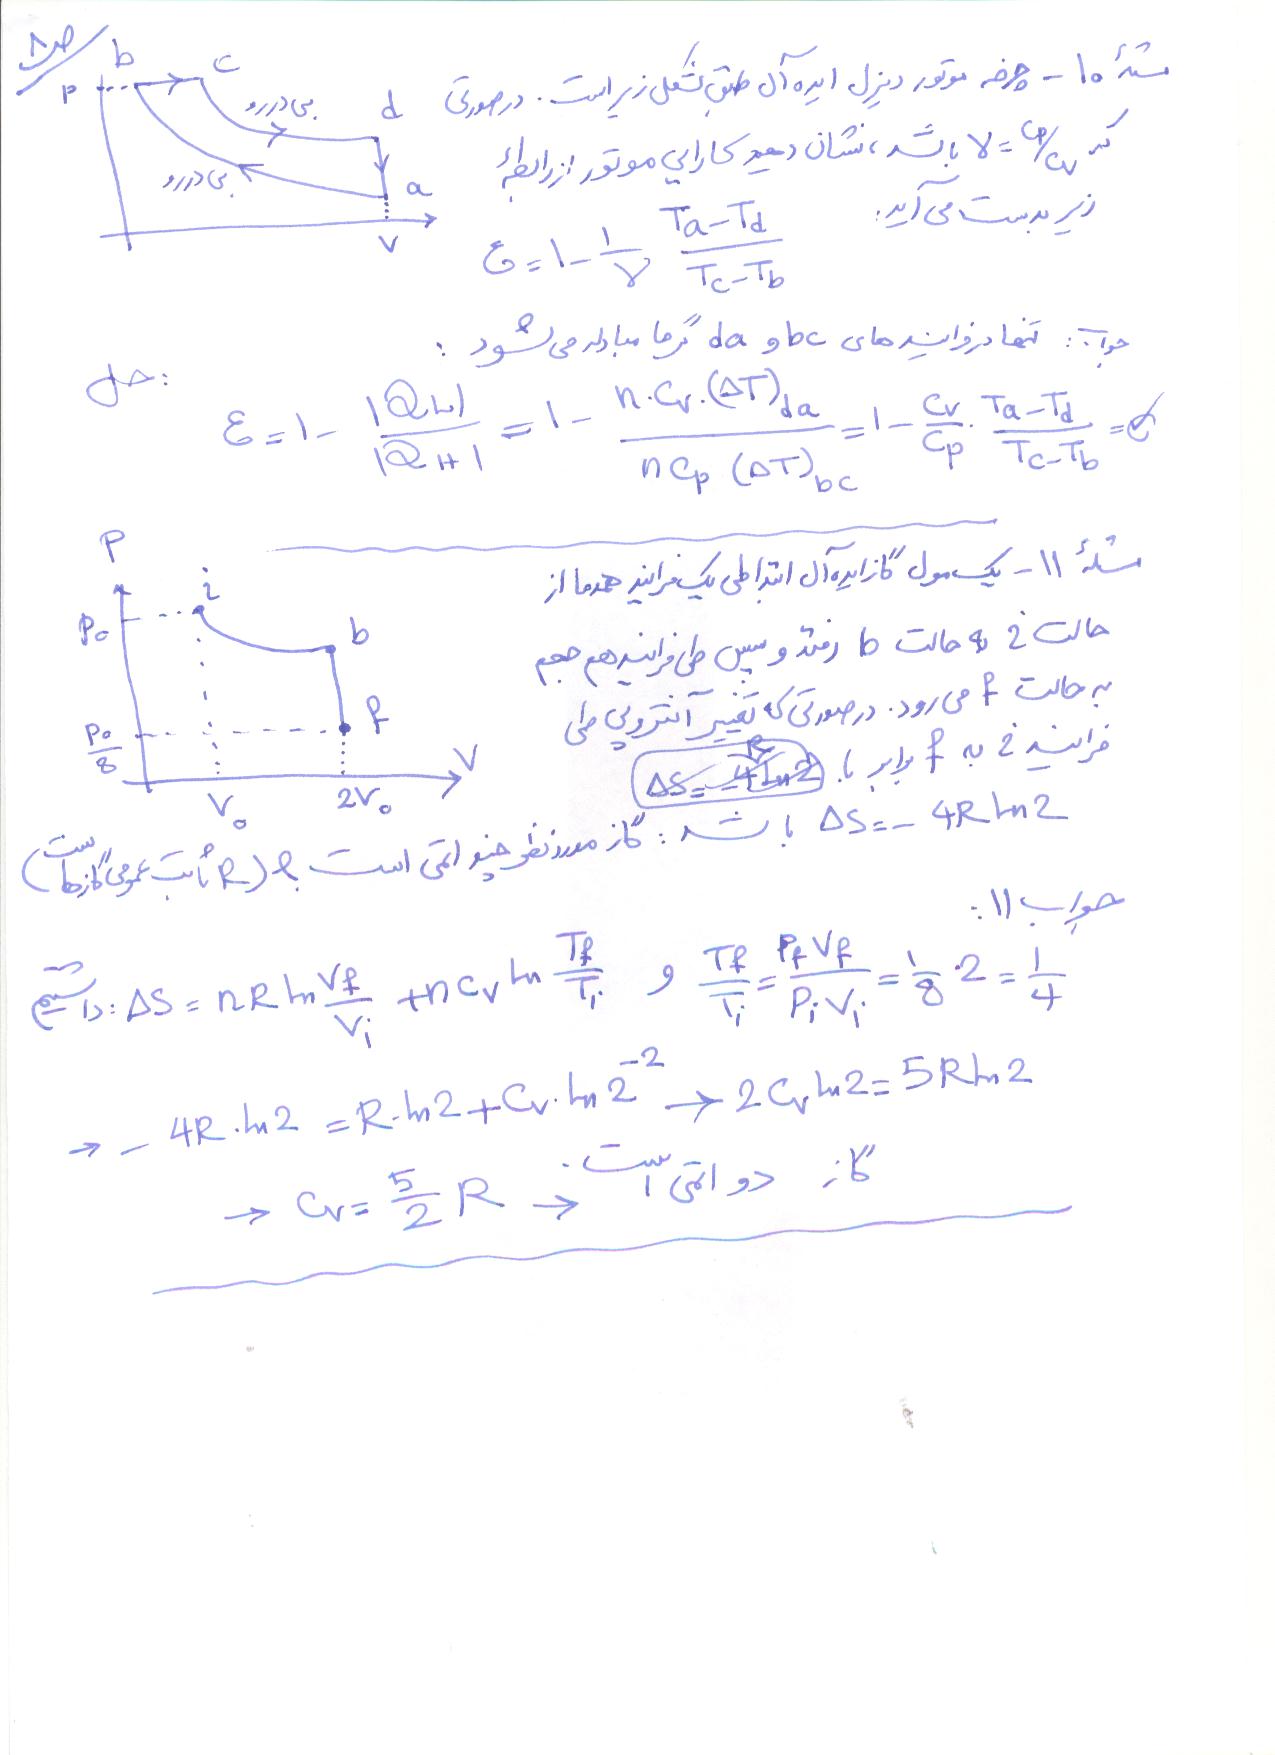 ص۸
مسئلهٔ ۱۰ - چرخه موتور دیزل ایده‌آل طبق شکل زیر است. در صورتی
که Cp/Cv = γ باشد، نشان دهید کارایی موتور از رابطهٔ
زیر بدست می‌آید:
ε = ۱ - ۱/γ (Ta-Td)/(Tc-Tb)
P b c d a V
بی‌دررو
بی‌دررو
جواب: تنها در فرایندهای bc و da گرما مبادله می‌شود:
حل:
ε = ۱ - |QL|/|QH| = ۱ - n.Cv.(ΔT)da / nCp (ΔT)bc = ۱ - Cv/Cp . (Ta-Td)/(Tc-Tb) = ε
مسئلهٔ ۱۱ - یک مول گاز ایده‌آل ابتدا طی یک فرایند همدما از
حالت i به حالت b رفته و سپس طی فرایند هم حجم
به حالت f می‌رود. در صورتی که تغییر آنتروپی طی
فرایند i به f برابر با
ΔS = - 4R ln2 باشد: گاز مورد نظر چند اتمی است؟ (R ثابت عمومی گازهاست)
P i b f V
P₀
P₀/8
V₀ 2V₀
جواب ۱۱:
داشتیم: ΔS = nR ln Vf/Vi + nCv ln Tf/Ti و Tf/Ti = PfVf/PiVi = 1/8 . 2 = 1/4
→ - 4R.ln2 = R.ln2 + Cv.ln2⁻² → 2Cv ln2 = 5R ln2
→ Cv = 5/2 R → گاز دو اتمی است.